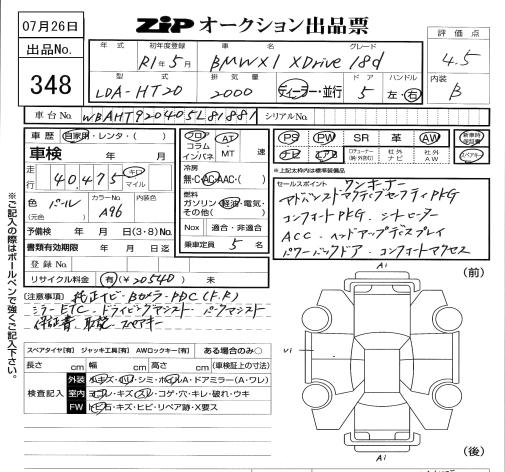 07月26日
ZiP オークション出品票
出品No.
348
年式 初年度登録 車名 グレード
R1年5月 BMW X1 XDrive 18d
型式 排気量 ドア ハンドル
LDA-HT20 2000 ディーラー・並行 5 左・右
評価点
4.5
内装
B
車台No. WBAHT920405L81881 シリアルNo.
車歴 自家用・レンタ・( )
車検 年 月
走行 40,475 キロ マイル
色 パール (元色) カラーNo. A96 内装色
予備検 年 月 日(3・8)Mo.
書類有効期限 年 月 日迄
登録No.
リサイクル料金 有(¥20540) 未
フロア コラム インパネ AT・MT 速
冷房
無・C・AC・AAC・( )
燃料
ガソリン・軽油・電気・その他( )
Nox 適合・非適合
乗車定員 5 名
PS PW SR 革 AW 新車時保証書
ナビ エアB 社外ナビ 社外AW スペアキー
※上記太枠内は装備品
セールスポイント ワンオーナー
アドバンストアクティブセーフティPKG
コンフォートPKG. シートヒーター
ACC. ヘッドアップディスプレイ
パワーバックドア. コンフォートアクセス
(注意事項) 純正ナビ・Bカメラ・PDC(F.R)
ミラーETC. ドライビングアシスト パークアシスト
保証書 取説 スペアキー
スペアタイヤ[有] ジャッキ工具[有] AWロックキー[有] ある場合のみ○
長さ cm 幅 cm 高さ cm (車検証上の寸法)
検査記入
外装 小キズ・凹・シミ・ホイルA・ドアミラー(A・ワレ)
室内 ヨゴレ・キズ・スレ・コゲ・穴・キレ・破れ・ウキ
FW トビ石・キズ・ヒビ・リペア跡・X要ス
※ご記入の際はボールペンで強くご記入下さい。
(前)
A1
U1
A1
(後)